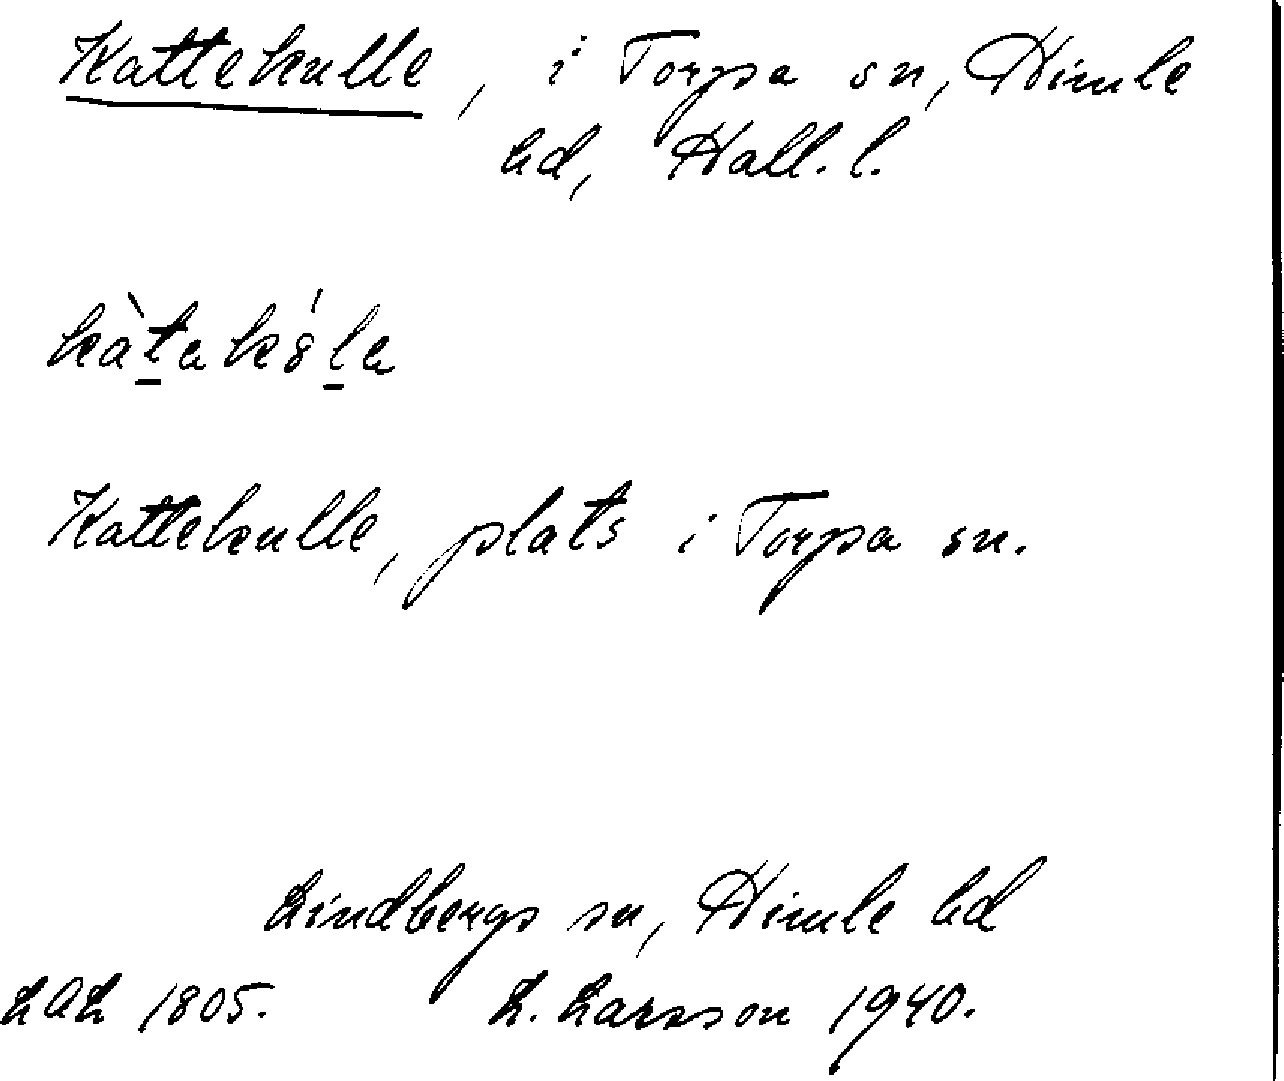 Kattekulle, i Torpa sn, Himle
hd, Hall. l.
kàtakúla
Kattekulle, plats i Torpa sn.
Lindbergs sn, Himle hd
LAL 1805. L. Larsson 1940.